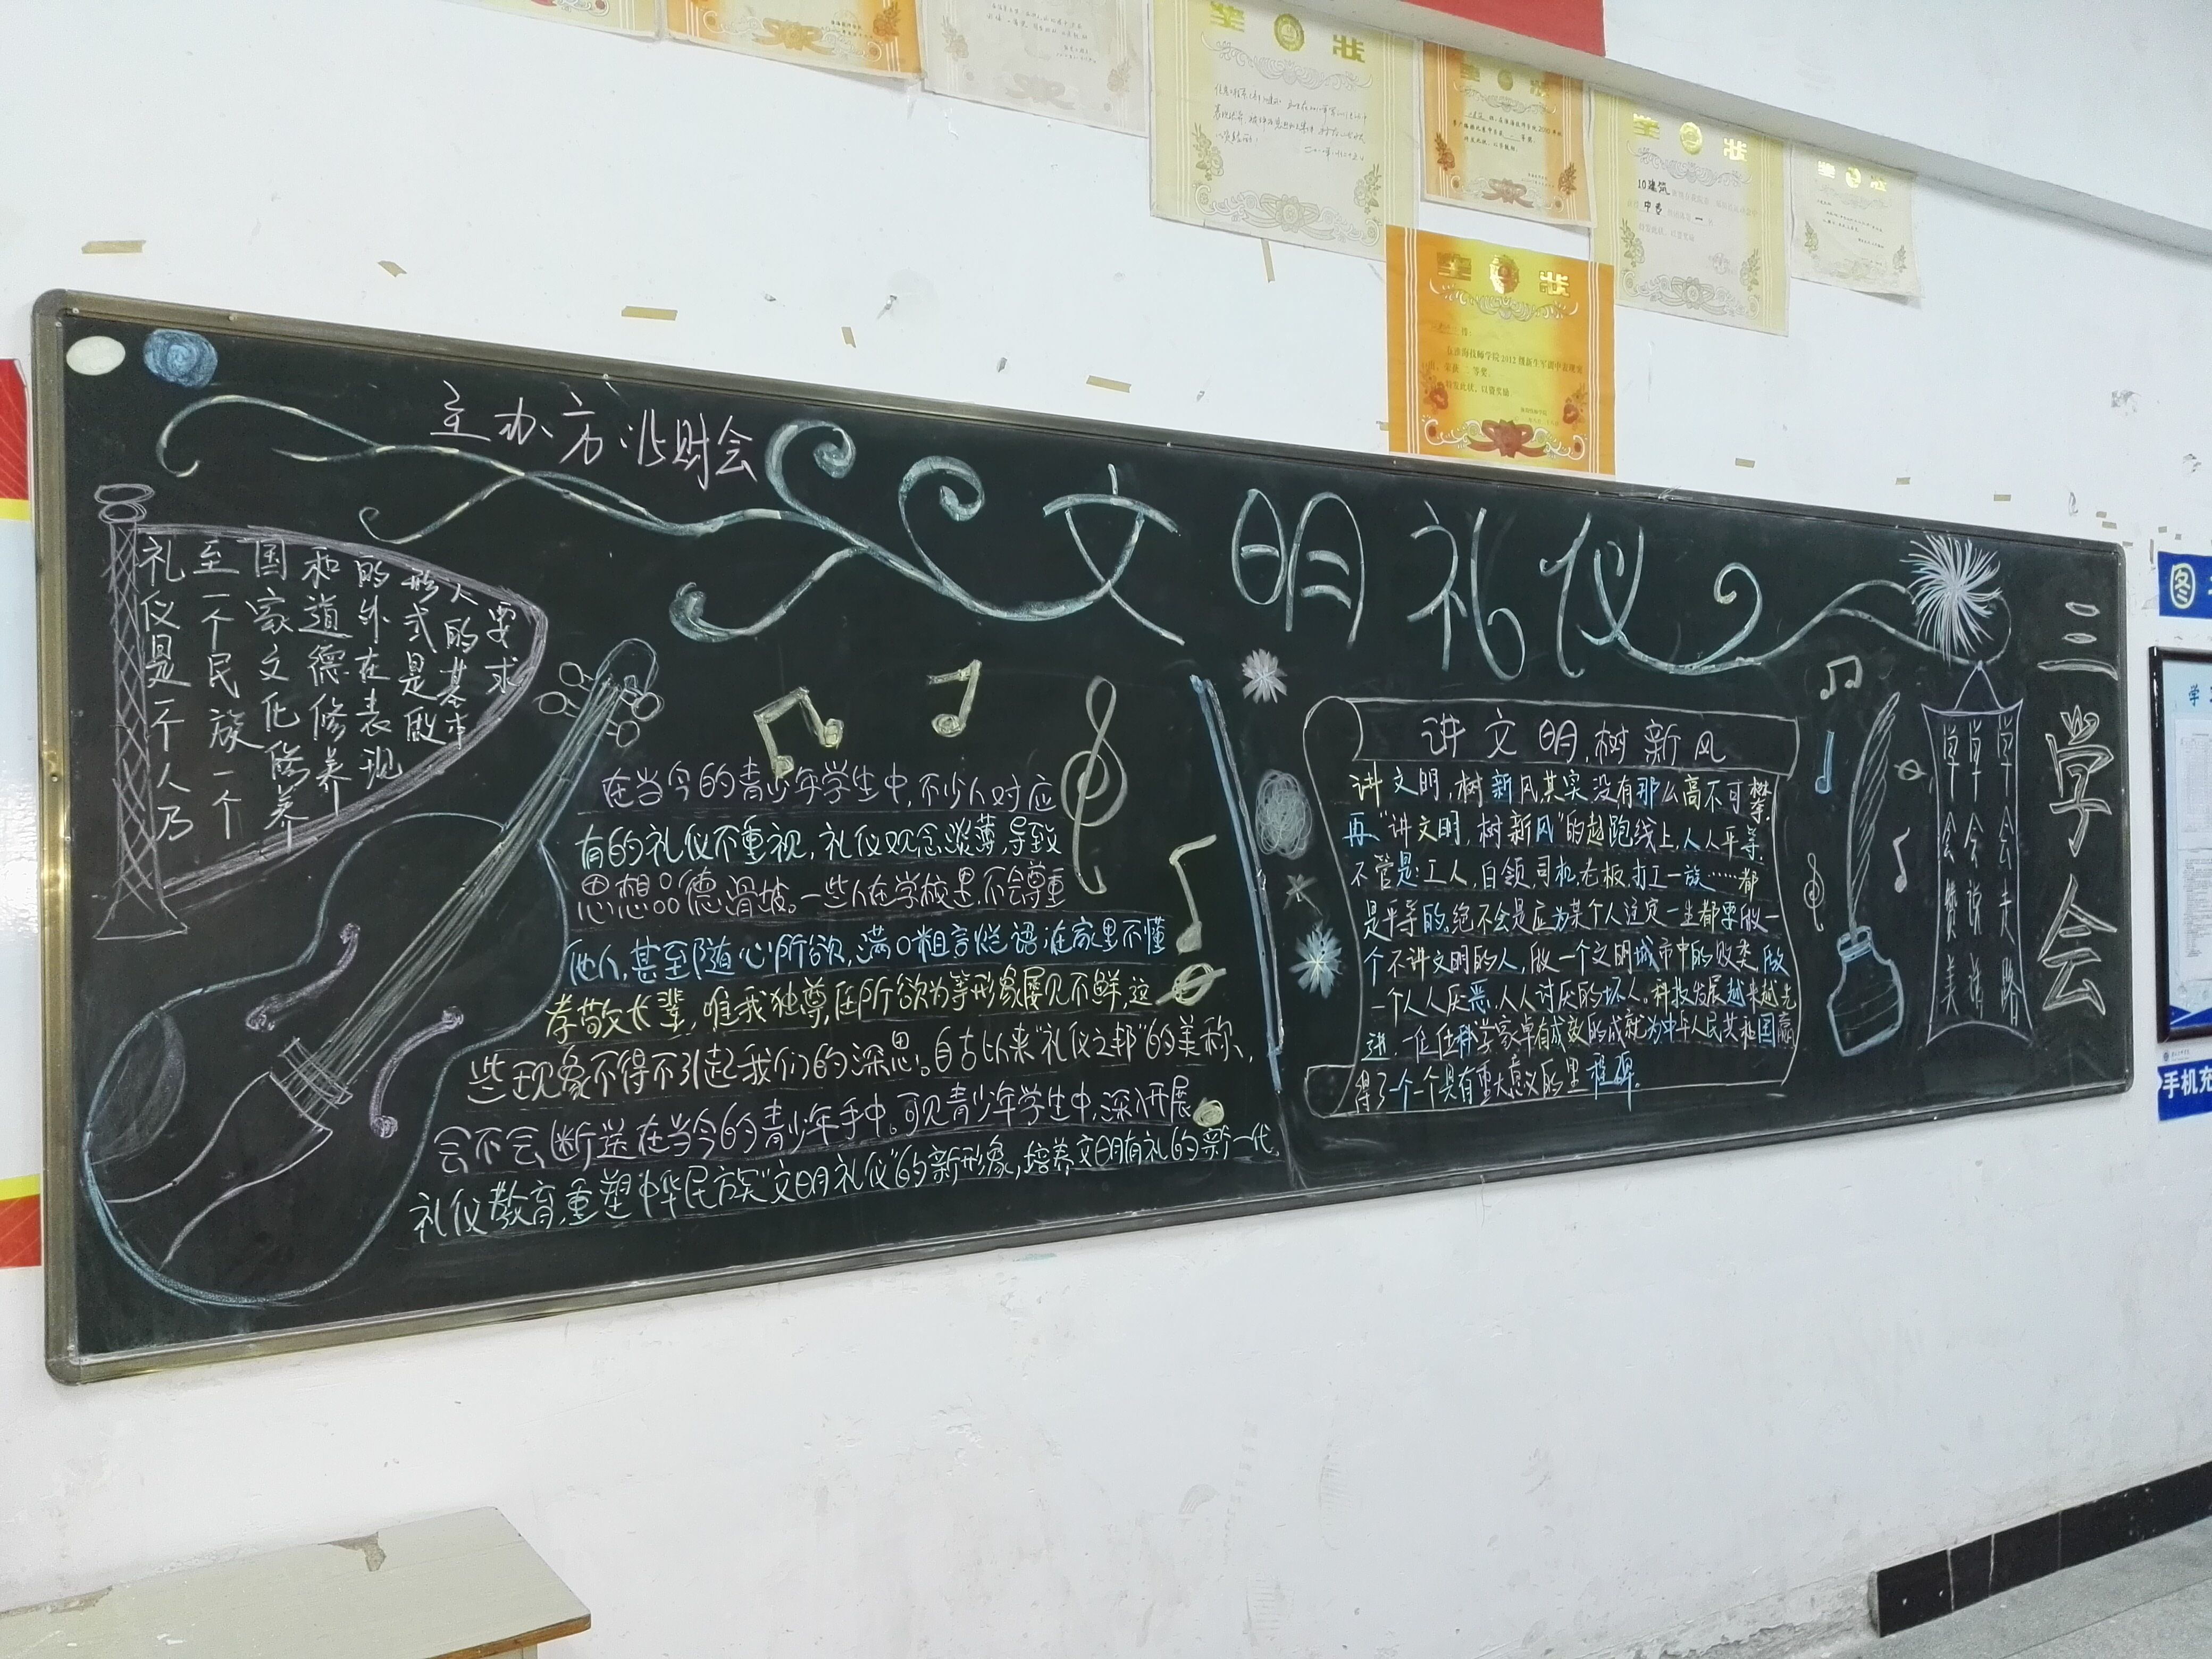 奖 状
奖 状
奖 状
10建筑
中专
一
奖 状
奖 状
在淮海技师学院2012级新生军训中表现突
出，荣获 二 等奖。
特发此状，以资奖励
主办方:北财会
文明礼仪
礼仪是一个人乃
至一个民族一个
国家文化修养
和道德修养
的外在表现
形式是做
人的基本
要求
在当今的青少年学生中,不少人对应
有的礼仪不重视,礼仪观念淡薄,导致
思想品德滑坡。一些人在学校里,不会尊重
他人,甚至随心所欲,满口粗言烂语;在家里不懂
孝敬长辈,唯我独尊,任所欲为等形象屡见不鲜,这
些现象不得不引起我们的深思。自古以来"礼仪之邦"的美称、
会不会断送在当今的青少年手中。可见青少年学生中,深入开展
礼仪教育,重塑中华民族"文明礼仪"的新形象,培养文明有礼的新一代.
讲文明,树新风
讲文明,树新风,其实没有那么高不可攀,
再"讲文明,树新风"的起跑线上,人人平等,
不管是:工人,白领,司机,老板,打工一族……都
是平等的。绝不会是应为某个人注定一生都要做一
个不讲文明的人,做一个文明城市中的败类,做
一个人人厌恶,人人讨厌的坏人。科技发展越来越先
进,一位位科学家卓有成效的成就为中华人民共和国赢
得了一个一个具有重大意义的里程碑.
三学会
单单会赞美
单单会说话
单会走路
图
学
手机充